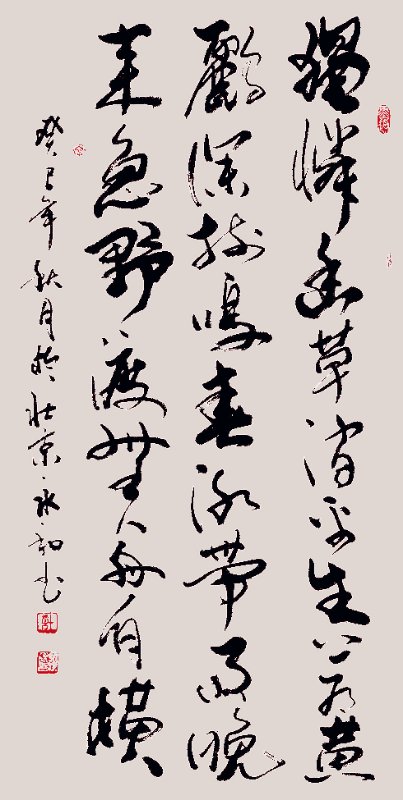 獨憐幽草澗邊生上有黃
鸝深樹鳴春潮帶雨晚
來急野渡無人舟自橫
癸巳年秋月於北京永书